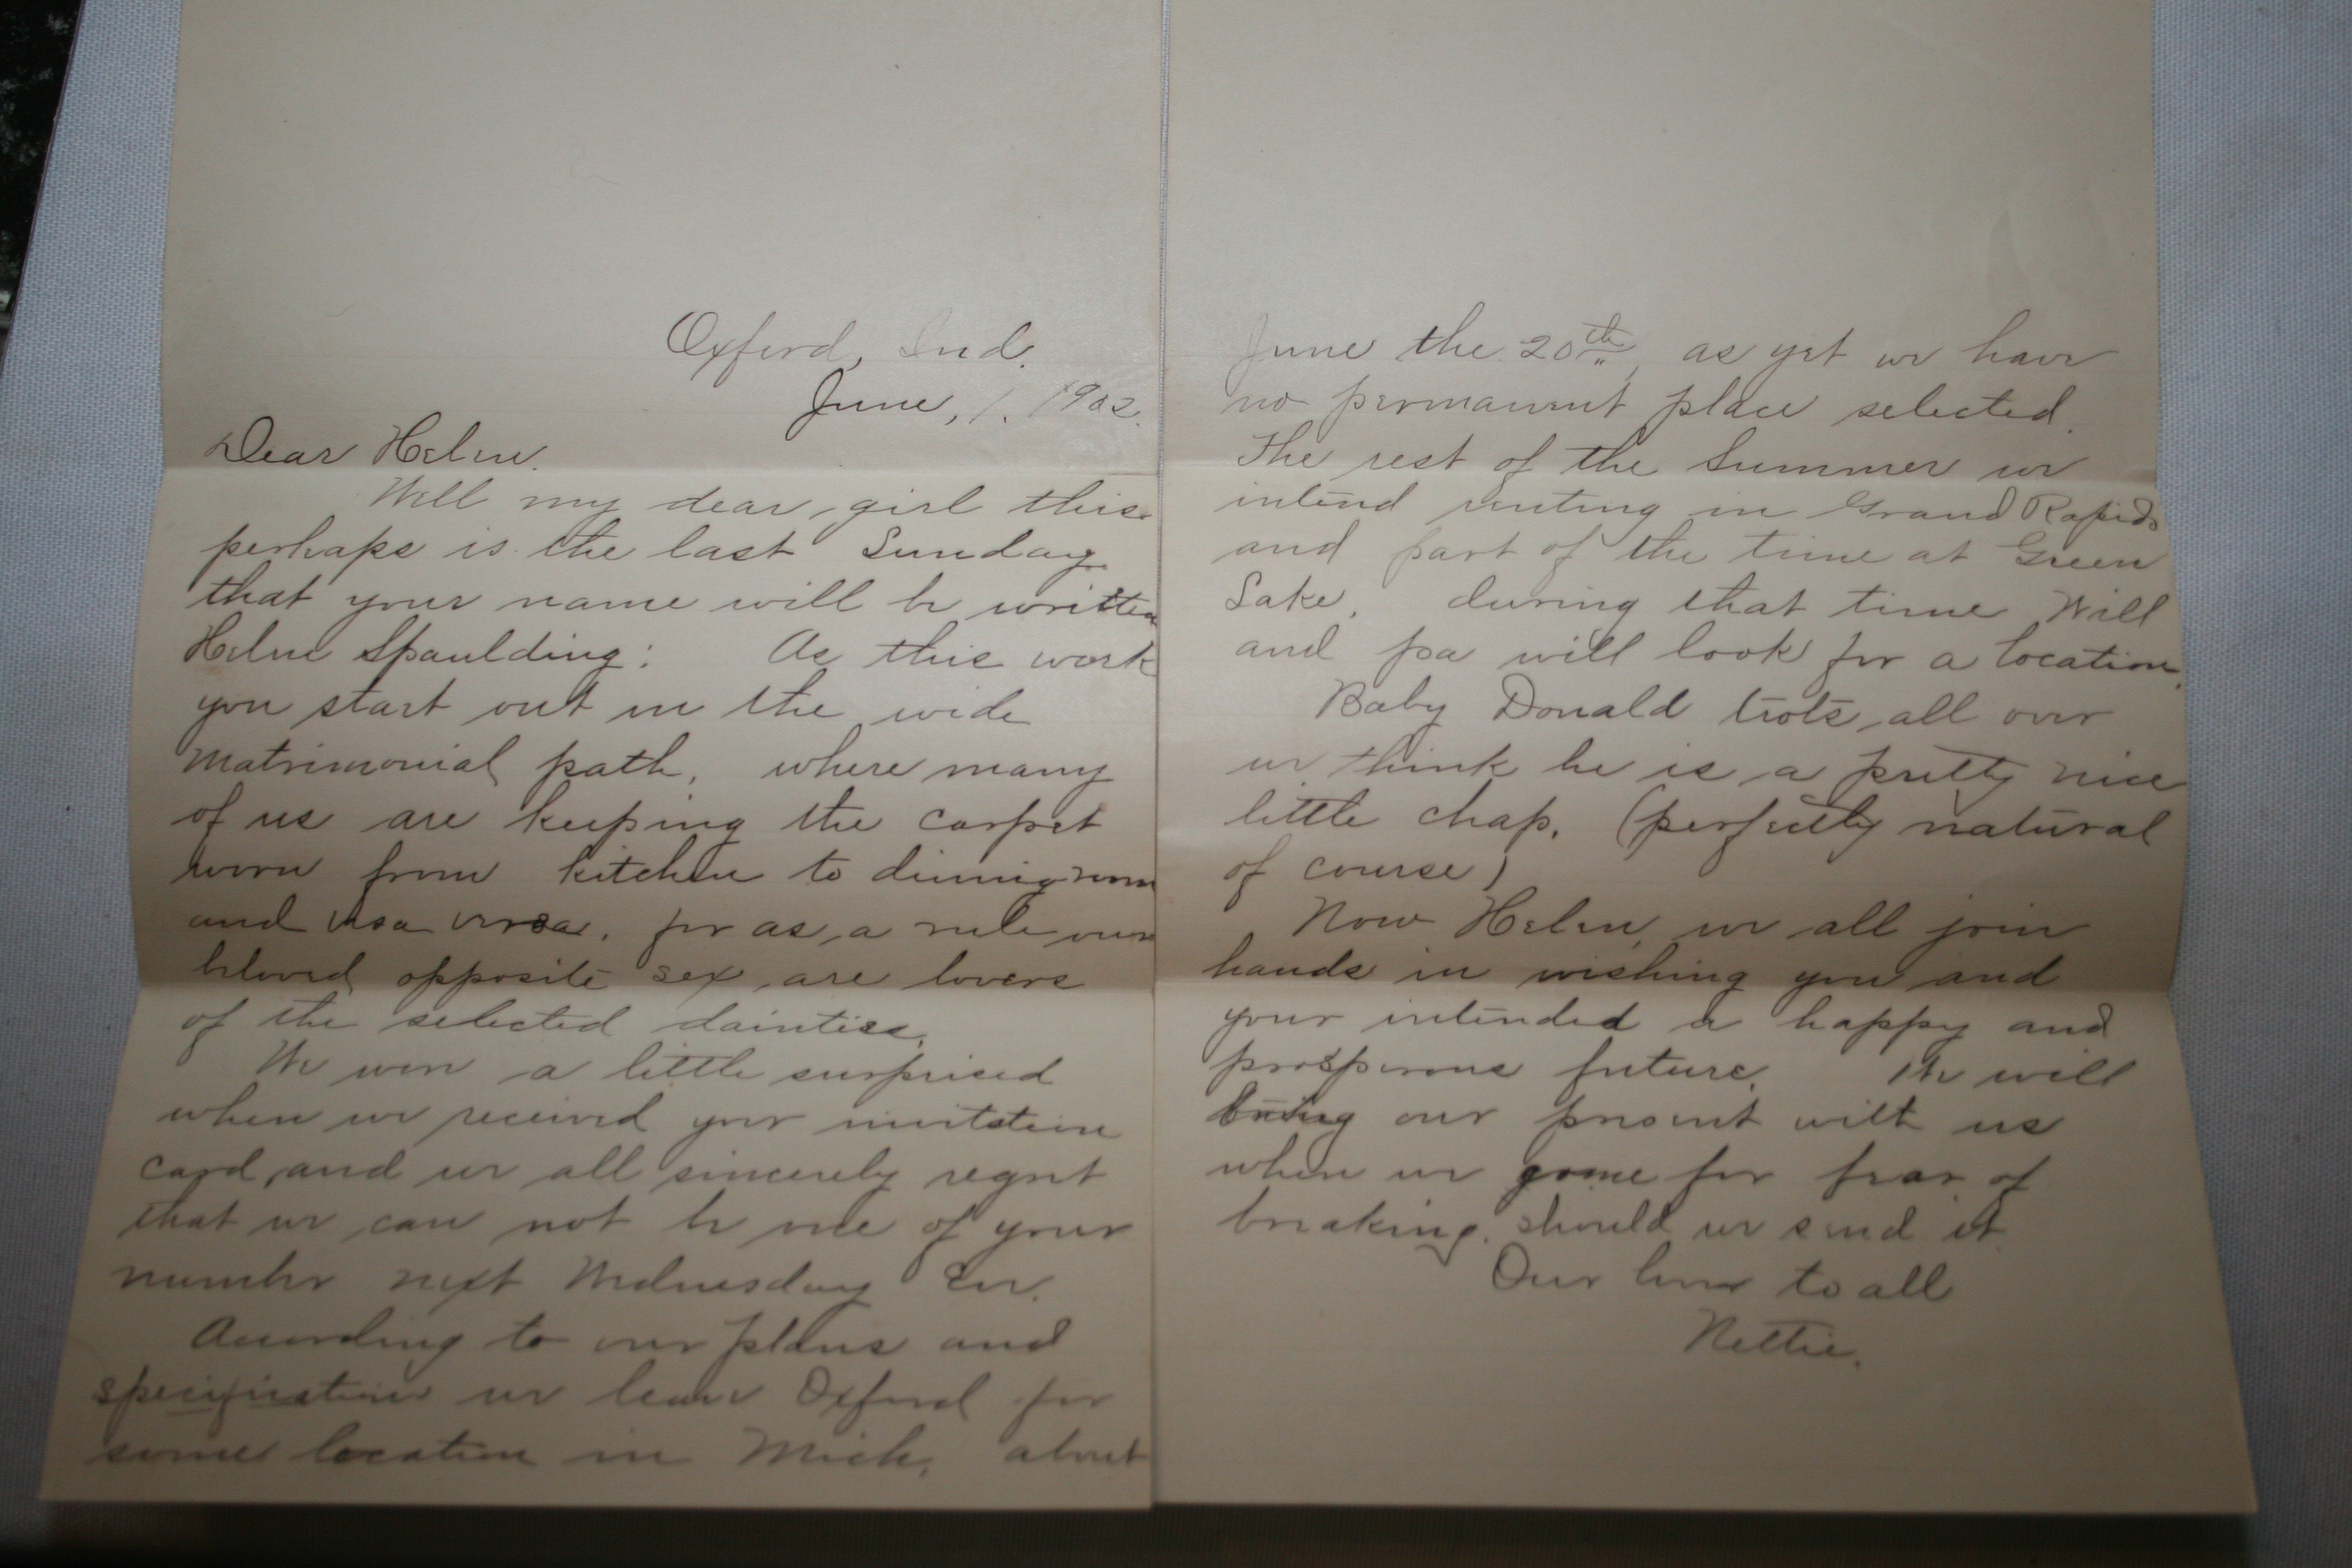 Oxford, Ind.
June, 1. 1902.
Dear Helen.
Well my dear girl this
perhaps is the last Sunday
that your name will be written
Helen Spaulding: As this work
you start out in the wide
matrimonial path, where many
of us are keeping the carpet
worn from kitchen to dinning room
and visa versa. for as a rule our
beloved opposite sex are lovers
of the selected dainties.
We were a little surprised
when we received your invitation
card, and we all sincerely regret
that we can not be one of your
number next Wednesday Eve.
According to our plans and
specifications we leave Oxford for
some location in Mich. about
June the 20th, as yet we have
no permanent place selected.
The rest of the Summer we
intend renting in Grand Rapids
and part of the time at Green
Lake, during that time Will
and pa will look for a location.
Baby Donald trots all over
we think he is a pretty nice
little chap. (perfectly natural
of course)
Now Helen, we all join
hands in wishing you and
your intended a happy and
prosperous future. We will
bring our present with us
when we come for fear of
breaking. should we send it
Our love to all
Nettie.